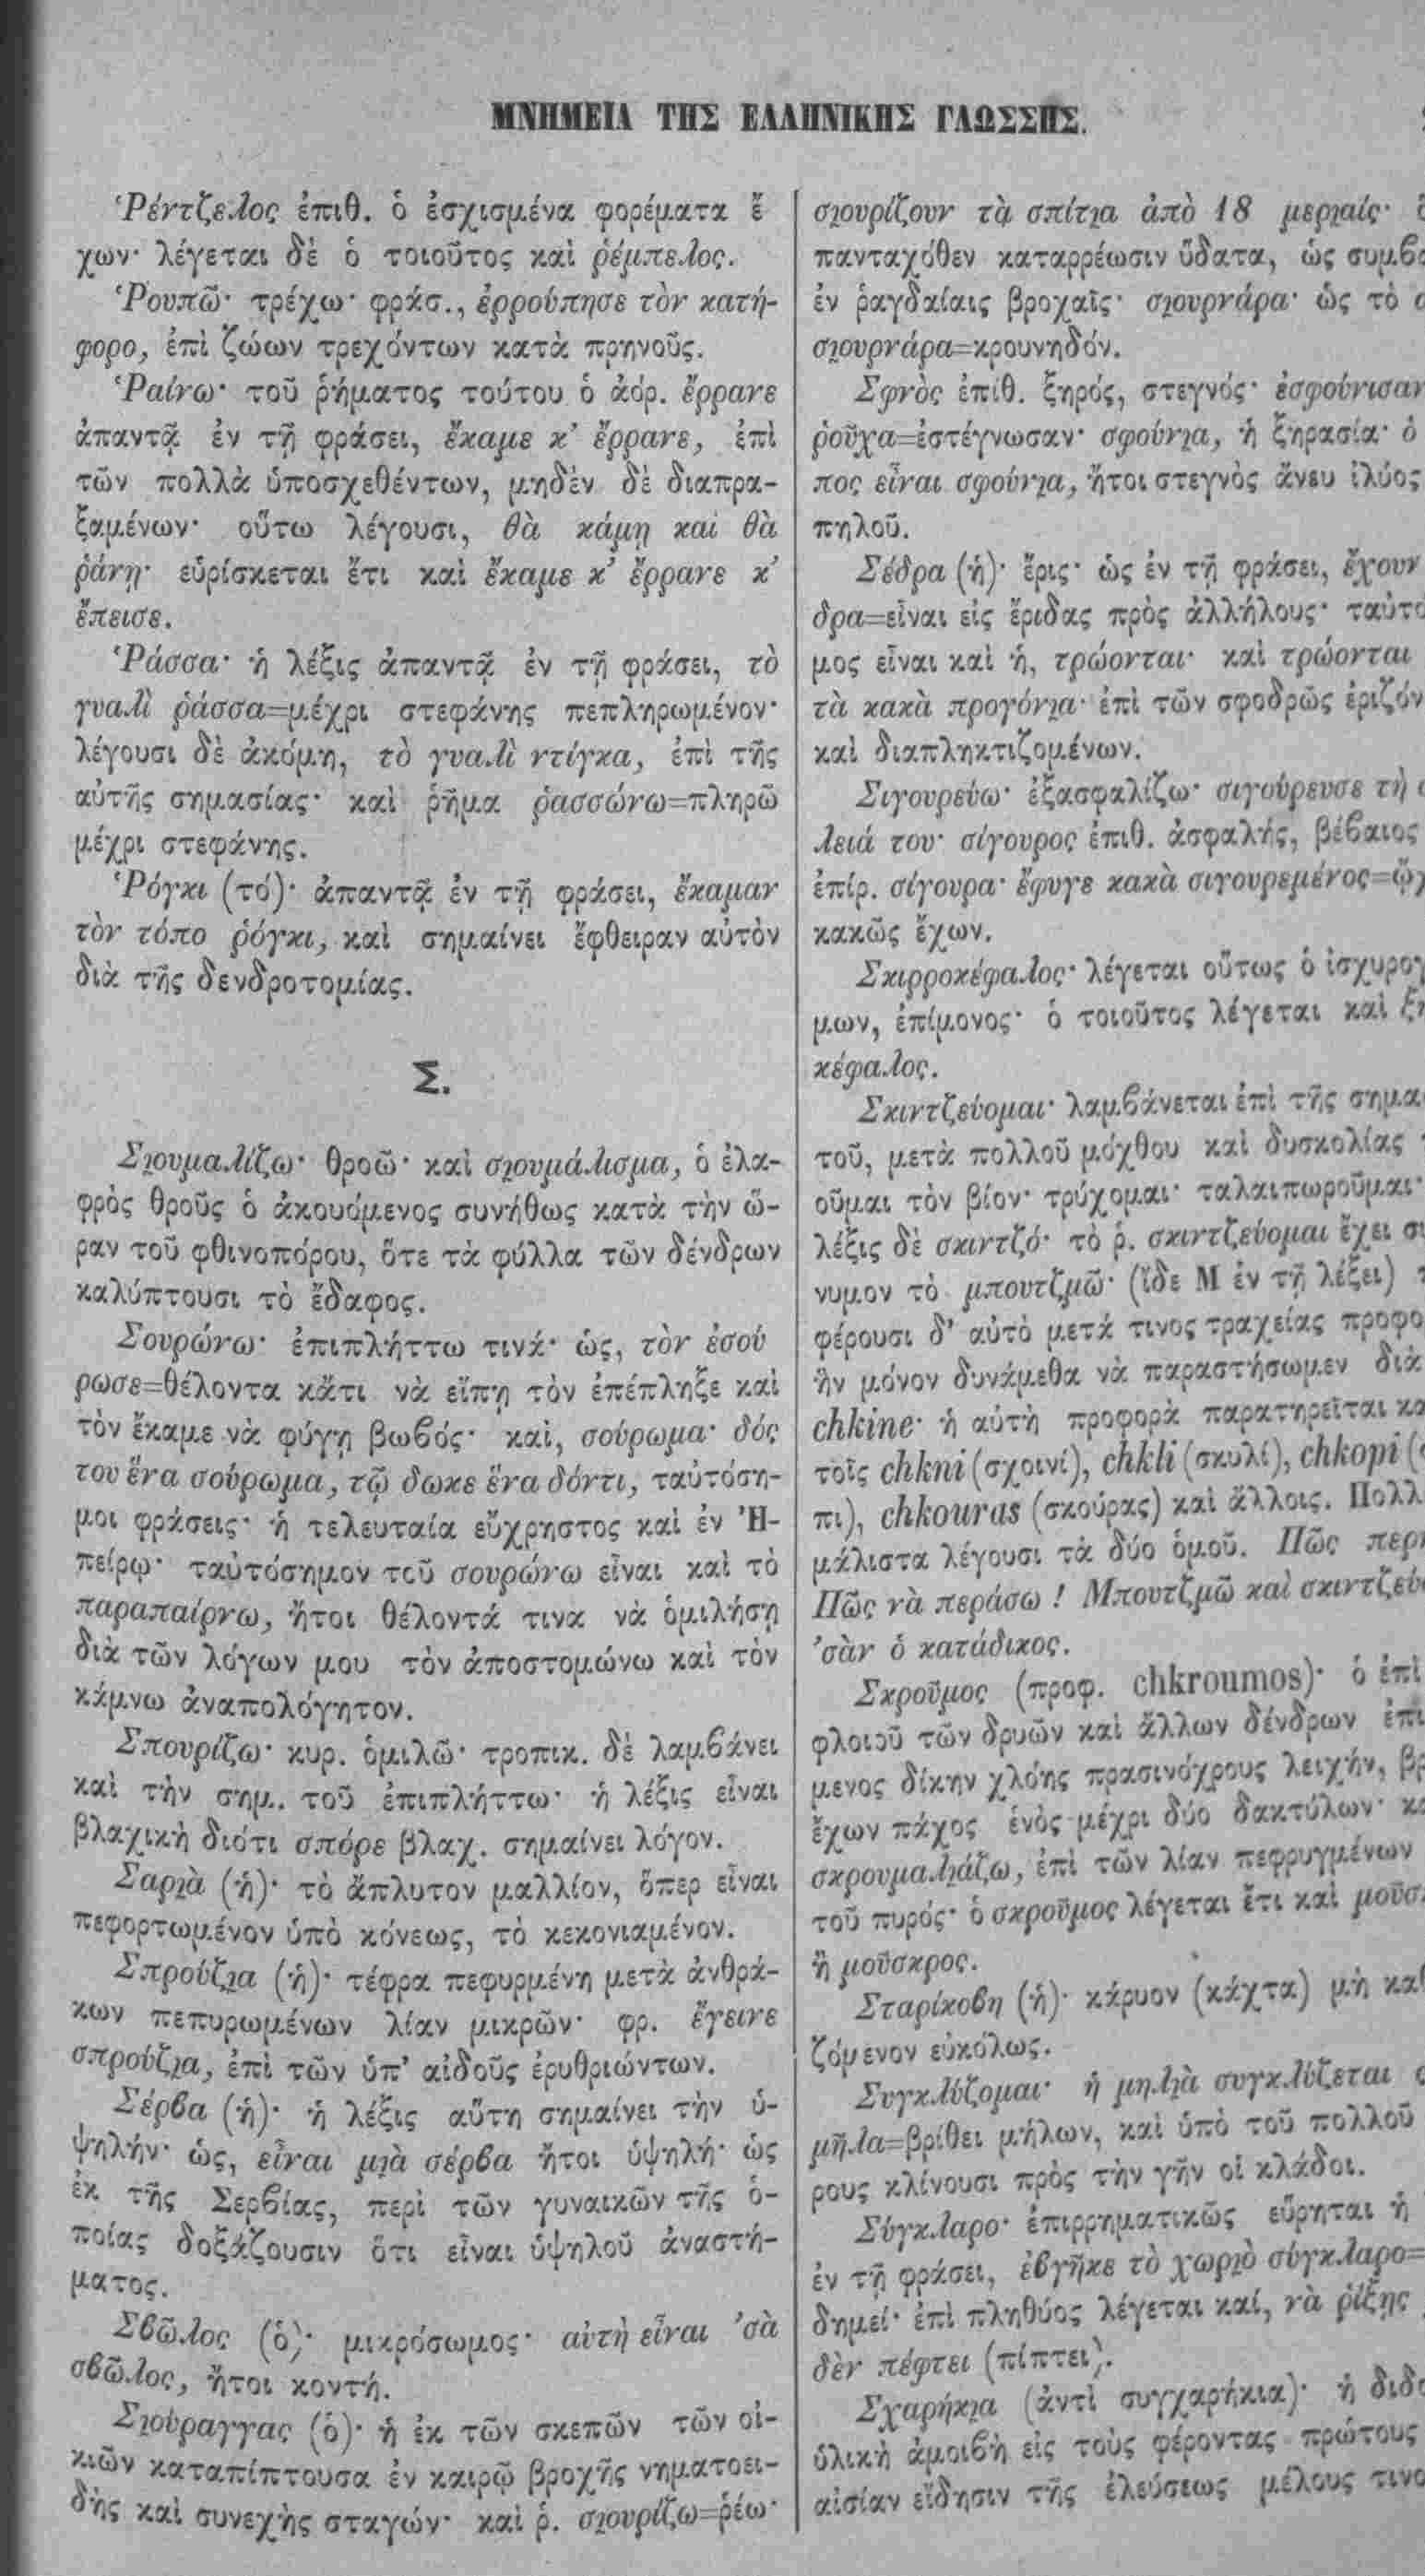 ΜΝΗΜΕΙΑ ΤΗΣ ΕΛΛΗΝΙΚΗΣ ΓΛΩΣΣΗΣ.
Ῥέντζελος ἐπιθ. ὁ ἐσχισμένα φορέματα ἔ
χων· λέγεται δὲ ὁ τοιοῦτος καὶ ῥέμπελος.
Ῥουπῶ· τρέχω· φράσ., ἐρρούπησε τὸν κατή-
φορο, ἐπὶ ζώων τρεχόντων κατὰ πρηνοῦς.
Ῥαίνω· τοῦ ῥήματος τούτου ὁ ἀόρ. ἔρρανε
ἀπαντᾷ ἐν τῇ φράσει, ἔκαμε κ’ ἔρρανε, ἐπὶ
τῶν πολλὰ ὑποσχεθέντων, μηδὲν δὲ διαπρα-
ξαμένων· οὕτω λέγουσι, θὰ κάμῃ καὶ θὰ
ῥάνῃ· εὑρίσκεται ἔτι καὶ ἔκαμε κ’ ἔρρανε κ’
ἔπεισε.
Ῥάσσα· ἡ λέξις ἀπαντᾷ ἐν τῇ φράσει, τὸ
γυαλὶ ῥάσσα=μέχρι στεφάνης πεπληρωμένον·
λέγουσι δὲ ἀκόμη, τὸ γυαλὶ ντίγκα, ἐπὶ τῆς
αὐτῆς σημασίας· καὶ ῥῆμα ῥασσώνω=πληρῶ
μέχρι στεφάνης.
Ῥόγκι (τό)· ἀπαντᾷ ἐν τῇ φράσει, ἔκαμαν
τὸν τόπο ῥόγκι, καὶ σημαίνει ἔφθειραν αὐτὸν
διὰ τῆς δενδροτομίας.
Σ.
Σιουμαλίζω· θροῶ· καὶ σιουμάλισμα, ὁ ἐλα-
φρὸς θροῦς ὁ ἀκουόμενος συνήθως κατὰ τὴν ὥ-
ραν τοῦ φθινοπόρου, ὅτε τὰ φύλλα τῶν δένδρων
καλύπτουσι τὸ ἔδαφος.
Σουρώνω· ἐπιπλήττω τινά· ὡς, τὸν ἐσού
ρωσε=θέλοντα κἄτι νὰ εἴπῃ τὸν ἐπέπληξε καὶ
τὸν ἔκαμε νὰ φύγῃ βωβός· καὶ, σούρωμα· δός
του ἕνα σούρωμα, τῷ δωκε ἕνα δόντι, ταὐτόση-
μοι φράσεις· ἡ τελευταία εὔχρηστος καὶ ἐν Ἠ-
πείρῳ· ταὐτόσημον τοῦ σουρώνω εἶναι καὶ τὸ
παραπαίρνω, ἤτοι θέλοντά τινα νὰ ὁμιλήσῃ
διὰ τῶν λόγων μου τὸν ἀποστομώνω καὶ τὸν
κάμνω ἀναπολόγητον.
Σπουρίζω· κυρ. ὁμιλῶ· τροπικ. δὲ λαμβάνει
καὶ τὴν σημ. τοῦ ἐπιπλήττω· ἡ λέξις εἶναι
βλαχικὴ διότι σπόρε βλαχ. σημαίνει λόγον.
Σαριὰ (ἡ)· τὸ ἄπλυτον μαλλίον, ὅπερ εἶναι
πεφορτωμένον ὑπὸ κόνεως, τὸ κεκονιαμένον.
Σπρούζια (ἡ)· τέφρα πεφυρμένη μετὰ ἀνθρά-
κων πεπυρωμένων λίαν μικρῶν· φρ. ἔγεινε
σπρούζια, ἐπὶ τῶν ὑπ’ αἰδοῦς ἐρυθριώντων.
Σέρβα (ἡ)· ἡ λέξις αὕτη σημαίνει τὴν ὑ-
ψηλήν· ὡς, εἶναι μιὰ σέρβα ἤτοι ὑψηλή· ὡς
ἐκ τῆς Σερβίας, περὶ τῶν γυναικῶν τῆς ὁ-
ποίας δοξάζουσιν ὅτι εἶναι ὑψηλοῦ ἀναστή-
ματος.
Σβῶλος (ὁ)· μικρόσωμος· αὐτὴ εἶναι ’σὰ
σβῶλος, ἤτοι κοντή.
Σιούραγγας (ὁ)· ἡ ἐκ τῶν σκεπῶν τῶν οἰ-
κιῶν καταπίπτουσα ἐν καιρῷ βροχῆς νηματοει-
δὴς καὶ συνεχὴς σταγών· καὶ ῥ. σιουρίζω=ῥέω·
σιουρίζουν τὰ σπίτια ἀπὸ 18 μεριαίς·
πανταχόθεν καταρρέωσιν ὕδατα, ὡς
ἐν ῥαγδαίαις βροχαῖς· σιουρνάρα· ὡς τὸ
σιουρνάρα=κρουνηδόν.
Σφνὸς ἐπίθ. ξηρός, στεγνός· ἐσφούνισαν
ῥοῦχα=ἐστέγνωσαν· σφούνια, ἡ ξηρασία· ὁ
πος εἶναι σφούνια, ἤτοι στεγνὸς ἄνευ ἰλύος
πηλοῦ.
Σέδρα (ἡ)· ἔρις· ὡς ἐν τῇ φράσει, ἔχουν
δρα=εἶναι εἰς ἔριδας πρὸς ἀλλήλους·
μος εἶναι καὶ ἡ, τρώονται· καὶ τρώονται
τὰ κακὰ προγόνια· ἐπὶ τῶν σφοδρῶς ἐριζόν
καὶ διαπληκτιζομένων.
Σιγουρεύω· ἐξασφαλίζω· σιγούρευσε τὴ
λειά του· σίγουρος ἐπιθ. ἀσφαλής, βέβαιος
ἐπίρ. σίγουρα· ἔφυγε κακὰ σιγουρεμένος=
κακῶς ἔχων.
Σκιρροκέφαλος· λέγεται οὕτως ὁ ἰσχυρογ
μων, ἐπίμονος· ὁ τοιοῦτος λέγεται καὶ
κέφαλος.
Σκιντζεύομαι· λαμβάνεται ἐπὶ τῆς σημα
τοῦ, μετὰ πολλοῦ μόχθου καὶ δυσκολίας
οῦμαι τὸν βίον· τρύχομαι· ταλαιπωροῦμαι·
λέξις δὲ σκιντζό· τὸ ῥ. σκιντζεύομαι ἔχει
νυμον τὸ μπουτζμῶ· (ἴδε Μ ἐν τῇ λέξει)
φέρουσι δ’ αὐτὸ μετά τινος τραχείας προφο
ἣν μόνον δυνάμεθα νὰ παραστήσωμεν διὰ
chkine· ἡ αὐτὴ προφορὰ παρατηρεῖται
τοῖς chkni (σχοινί), chkli (σκυλί), chkopi
πι), chkouras (σκούρας) καὶ ἄλλοις. Πολλ
μάλιστα λέγουσι τὰ δύο ὁμοῦ. Πῶς
Πῶς νὰ περάσω ! Μπουτζμῶ καὶ σκιντζεύ
’σὰν ὁ κατάδικος.
Σκροῦμος (προφ. chkroumos)· ὁ ἐπὶ
φλοιοῦ τῶν δρυῶν καὶ ἄλλων δένδρων
μενος δίκην χλόης πρασινόχρους λειχήν,
ἔχων πάχος ἑνὸς μέχρι δύο δακτύλων·
σκρουμαλιάζω, ἐπὶ τῶν λίαν πεφρυγμένων
τοῦ πυρός· ὁ σκροῦμος λέγεται ἔτι καὶ
ἢ μοῦσκρος.
Σταρίκοβη (ἡ)· κάρυον (κάχτα) μὴ
ζόμενον εὐκόλως.
Συγκλύζομαι· ἡ μηλιὰ συγκλύζεται
μῆλα=βρίθει μήλων, καὶ ὑπὸ τοῦ πολλοῦ
ρους κλίνουσι πρὸς τὴν γῆν οἱ κλάδοι.
Σύγκλαρο· ἐπιρρηματικῶς εὕρηται ἡ
ἐν τῇ φράσει, ἐβγῆκε τὸ χωριὸ σύγκλαρο=
δημεί· ἐπὶ πληθύος λέγεται καί, νὰ ῥίξῃς
δὲν πέφτει (πίπτει).
Σχαρήκια (ἀντὶ συγχαρήκια)· ἡ
ὑλικὴ ἀμοιβὴ εἰς τοὺς φέροντας πρώτους
αἰσίαν εἴδησιν τῆς ἐλεύσεως μέλους